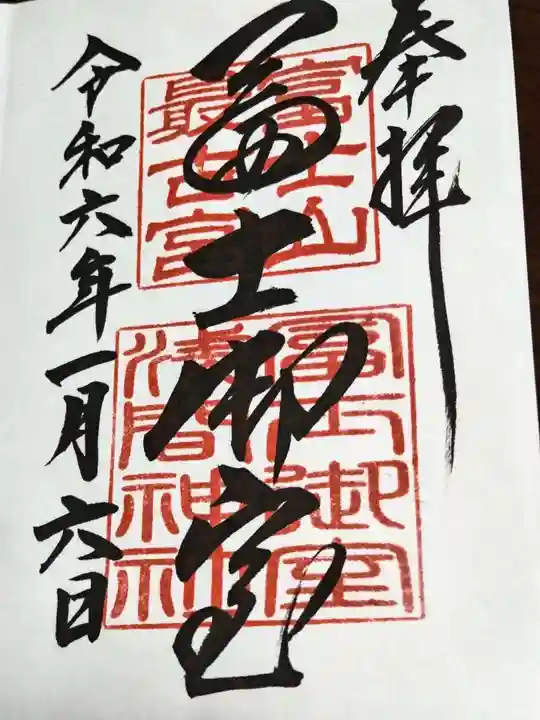 奉拝
富士山
最古宮
冨士御室
冨士御室
浅间神社
令和六年一月六日